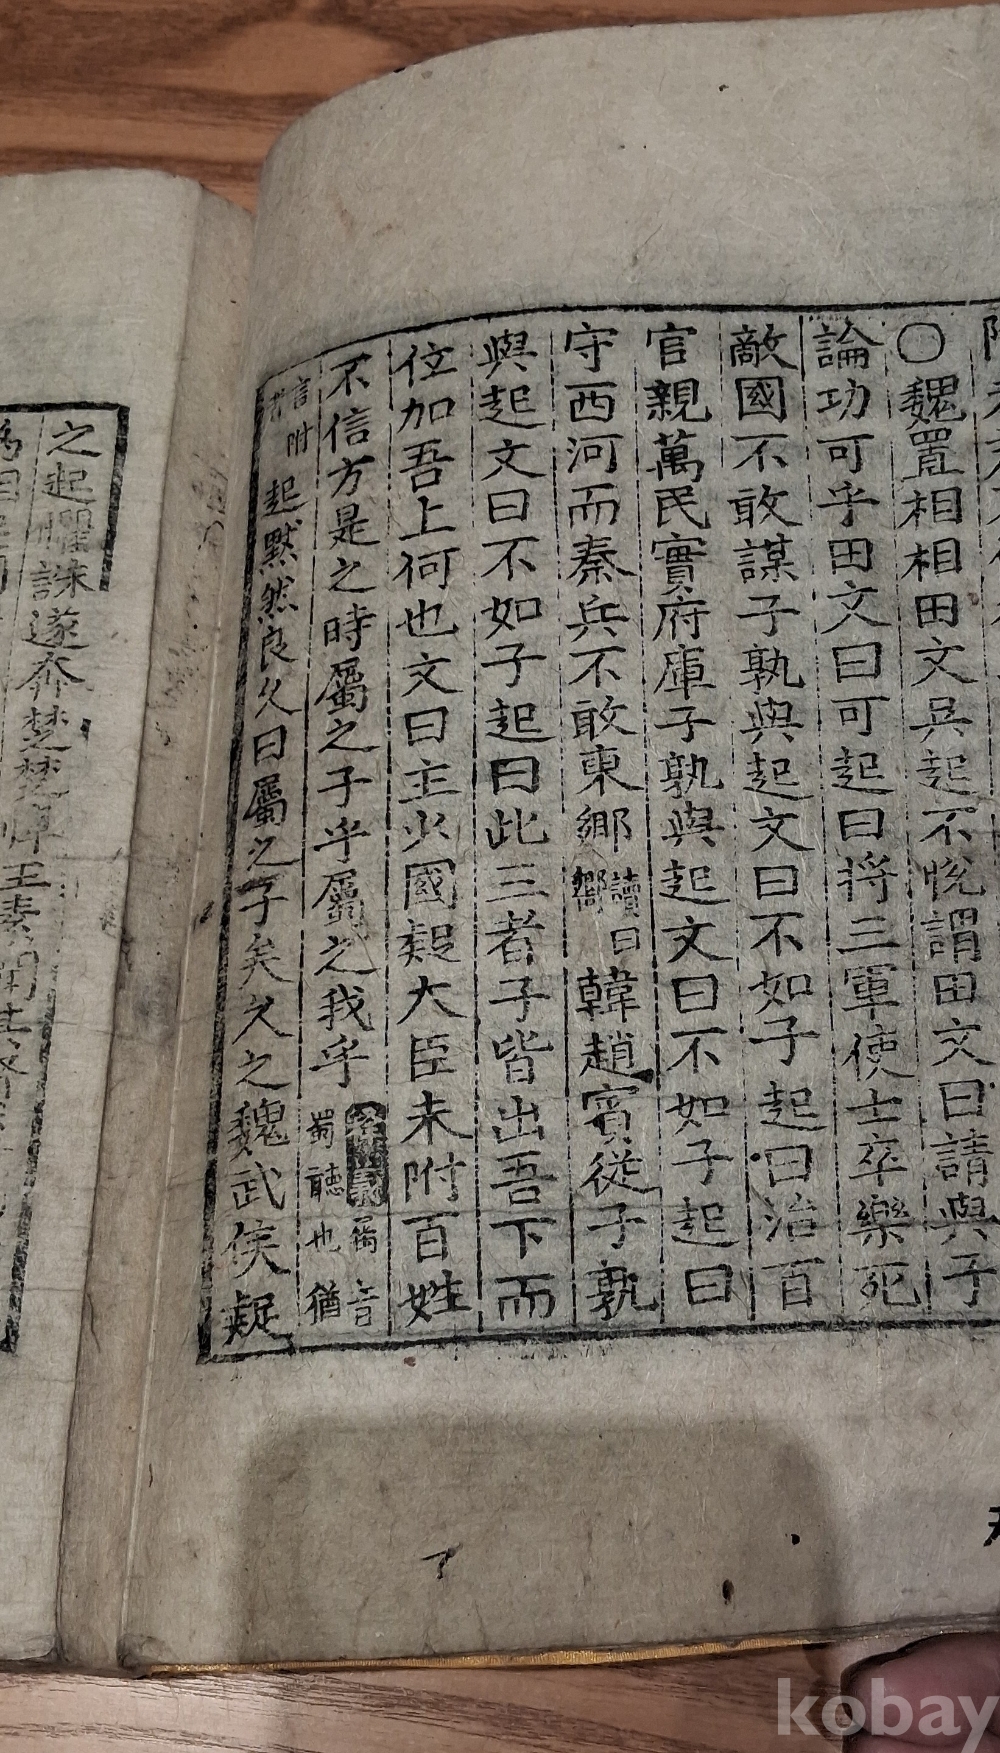 〇魏置相相田文吳起不悅謂田文曰請與子
論功可乎田文曰可起曰將三軍使士卒樂死
敵國不敢謀子孰與起文曰不如子起曰治百
官親萬民實府庫子孰與起文曰不如子起曰
守西河而秦兵不敢東鄕讀曰嚮韓趙賓從子孰
與起文曰不如子起曰此三者子皆出吾下而
位加吾上何也文曰主少國疑大臣未附百姓
不信方是之時屬之子乎屬之我乎音蜀聽也猶
言附起默然良久曰屬之子矣久之魏武侯疑
之起懼誅遂奔楚楚悼王素
kobay